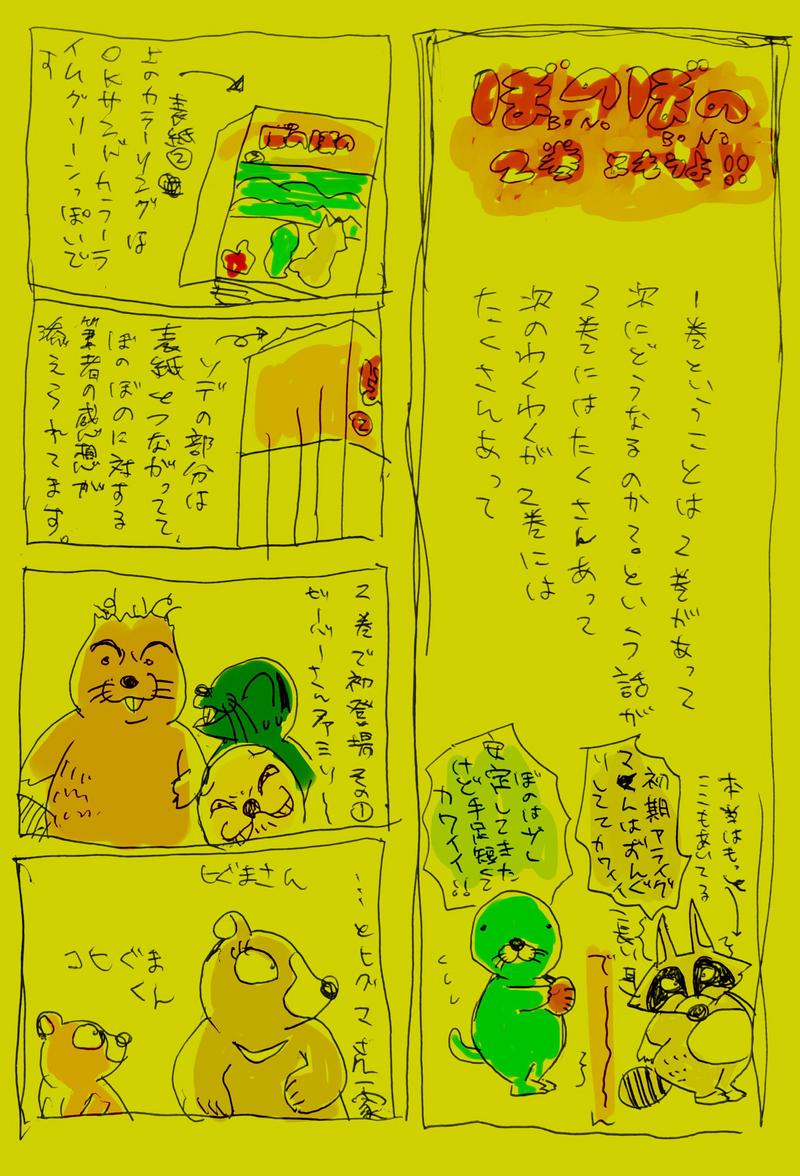 ぼのぼの
BONO
BONO
2巻 よもうよ!!
1巻ということは2巻があって
次にどうなるのかて。という話が
2巻にはたくさんあって
次のわくわくが2巻には
たくさんあって
本当はもっと
ここもあいてる
初期アライグ
マくんはずんぐ
りしててカワイイ
ぼのは少し
安定してきた
けど手足短くて
カワイイ!!
長い
で
表紙②
上のカラーリングは
OKサンドカラーラ
イムグリーンっぽいで
す
ぼのぼの
②
ソデの部分は
表紙とつながってて、
ぼのぼのに対する
筆者の感想が
添えられてます。
②
2巻で初登場 その①
ビーバーさんファミリー
…とヒグマさん一家
ヒぐまさん
コヒぐま
くん